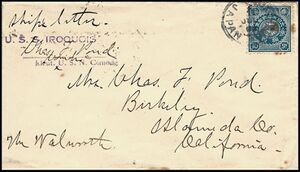 ships letter.
U. S. S. IROQUOIS
Chas F. Pond.
Lieut. U. S. N. Comdg
JAPAN
Mrs. Chas. F. Pond
Berkeley
Alameda Co.
California